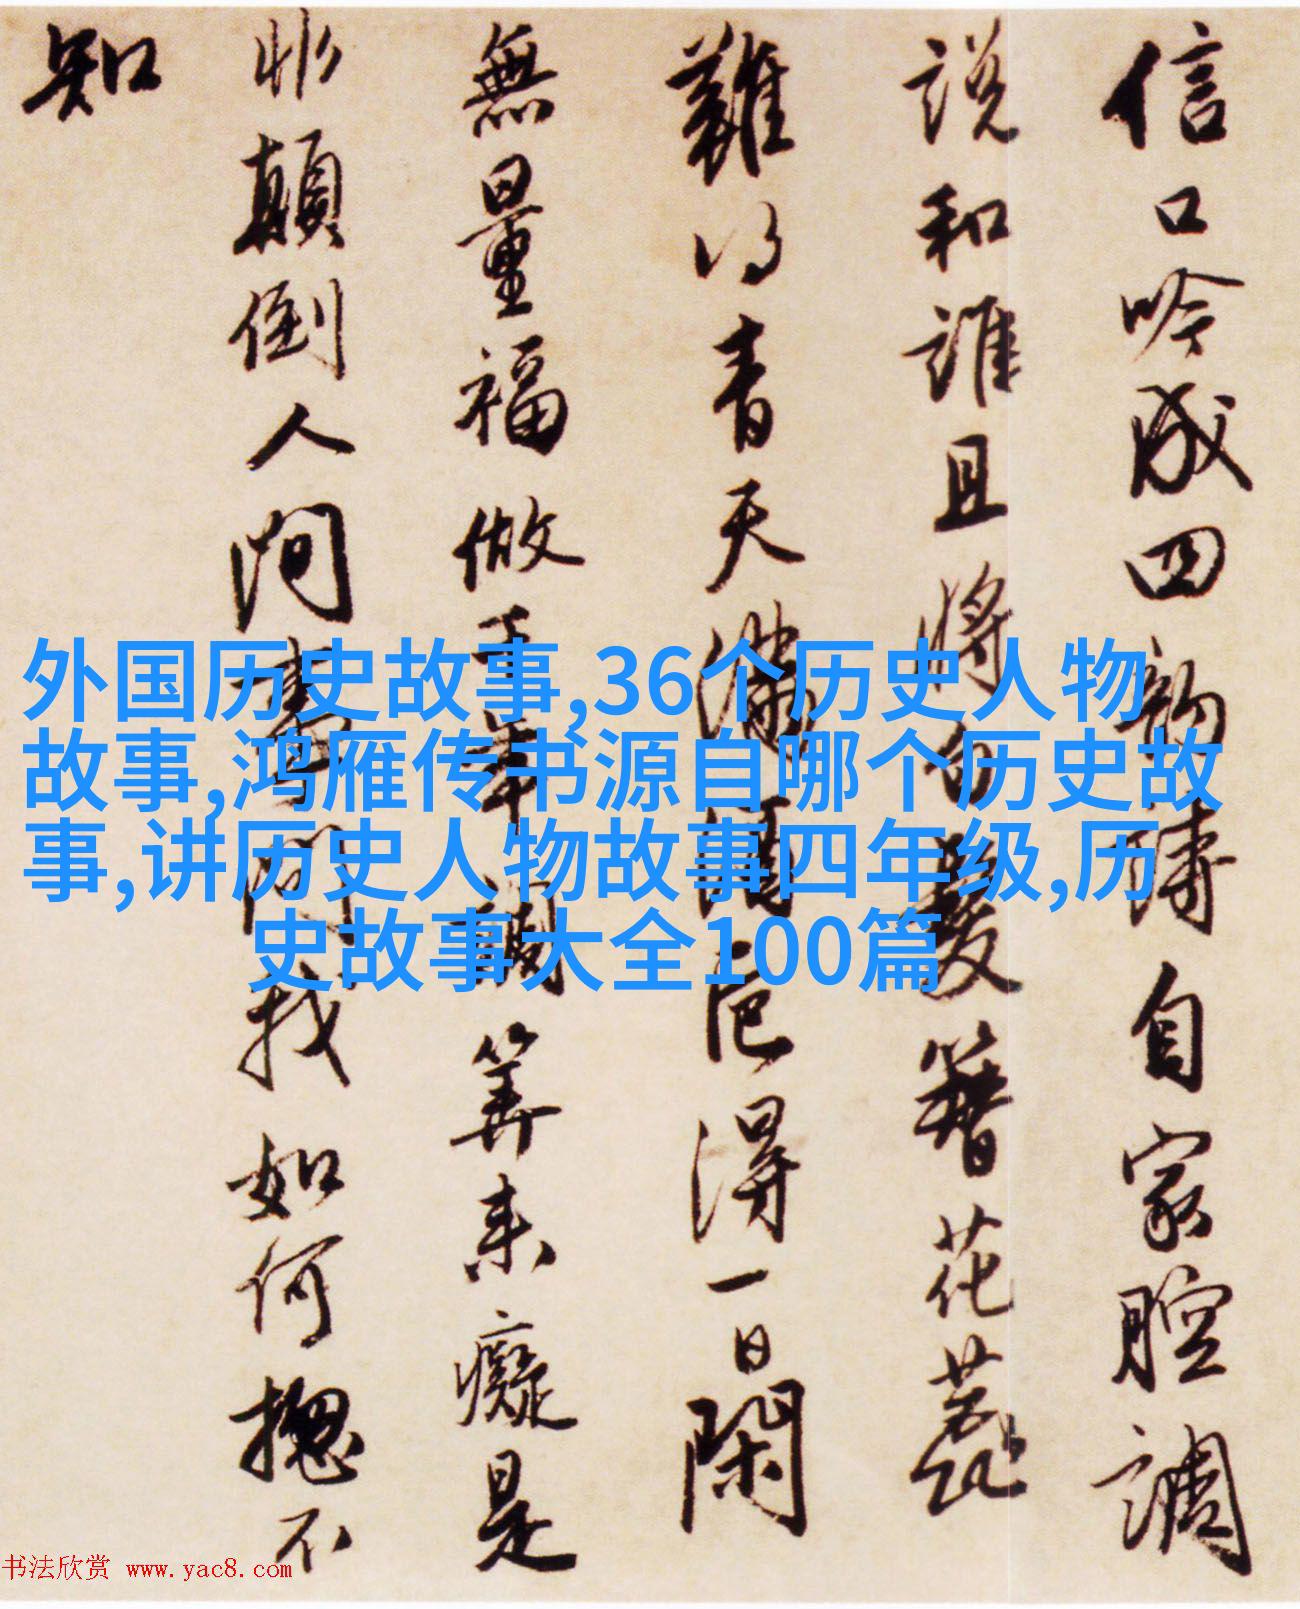 信口吟成四韵詩自家腔調
說和誰且將白髮簪花蕊
難得青天滿酒卮得一日閑
無量福做千年調算来癡是
非顛倒人間事問我如何摠不
知
外国历史故事,36个历史人物
故事,鸿雁传书源自哪个历史故
事,讲历史人物故事四年级,历
史故事大全100篇
书法欣赏 www.yac8.com